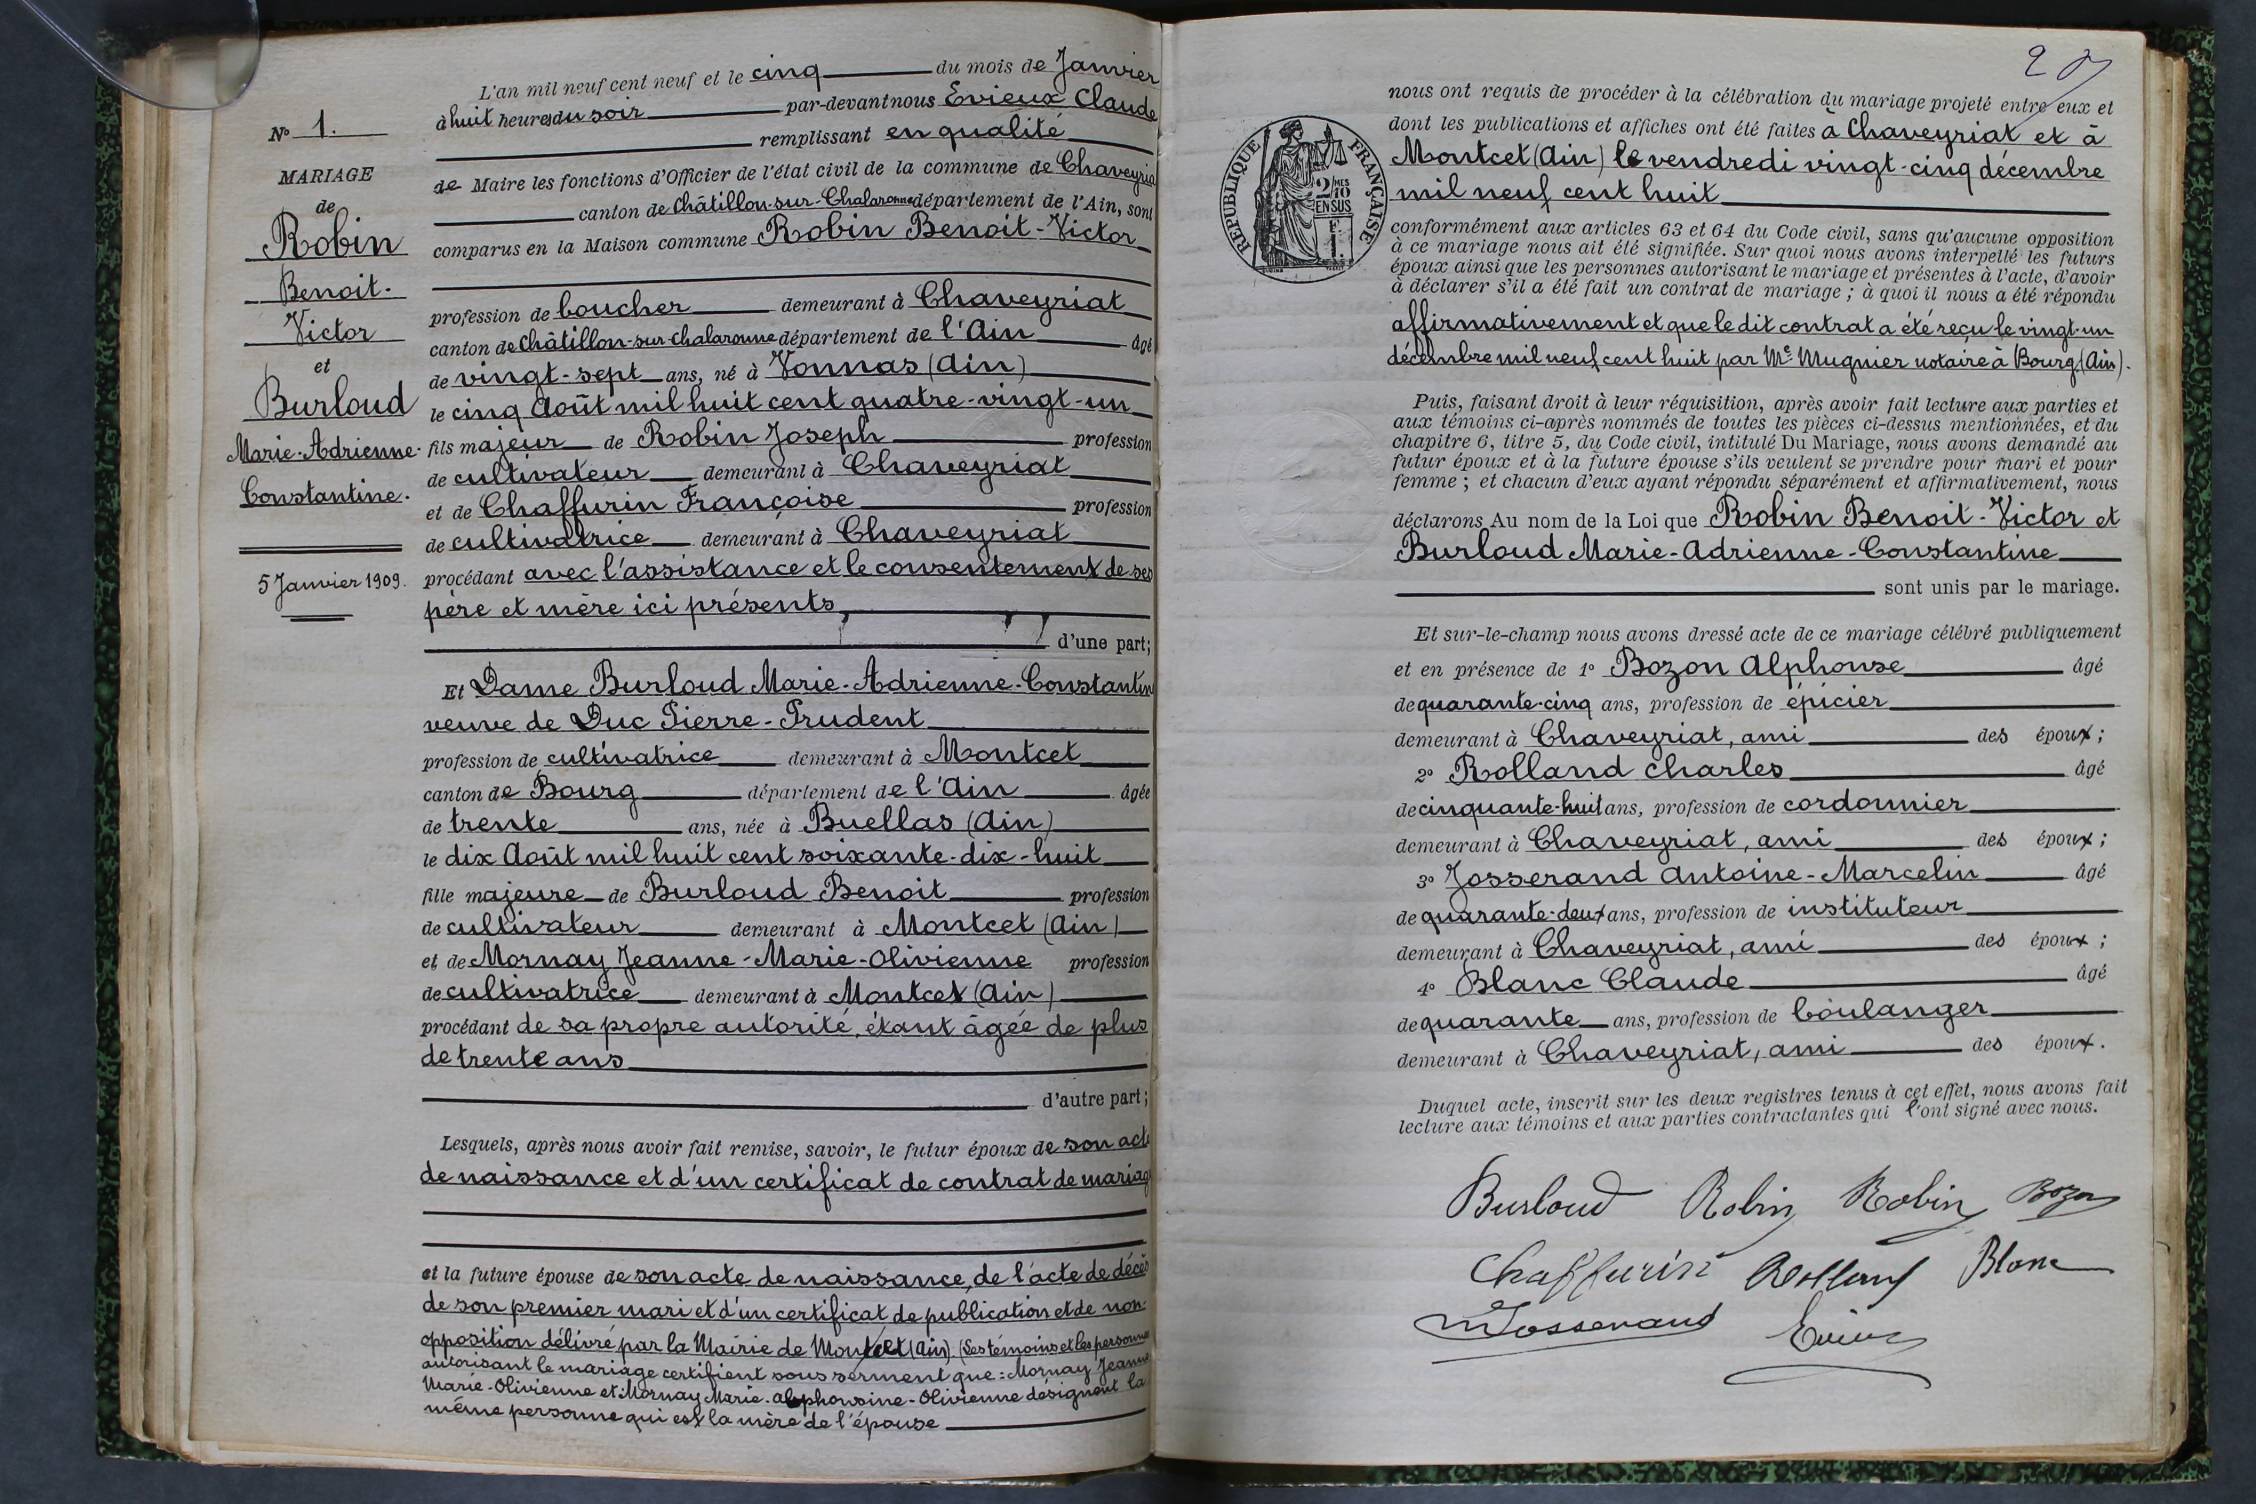 Nº 1.
MARIAGE
de
Robin
Benoit-
Victor
et
Burloud
Marie-Adrienne-
Constantine.
5 Janvier 1909.
L'an mil neuf cent neuf et le cinq du mois de Janvier
à huit heures du soir par-devant nous Evieux Claude
remplissant en qualité
de Maire les fonctions d'Officier de l'état civil de la commune de Chaveyria
canton de Châtillon-sur-Chalaronne département de l'Ain, sont
comparus en la Maison commune Robin Benoit-Victor
profession de boucher demeurant à Chaveyriat
canton de Châtillon-sur-chalaronne département de l'Ain âgé
de vingt-sept ans, né à Vonnas (Ain)
le cinq Août mil huit cent quatre-vingt-un
fils majeur de Robin Joseph profession
de cultivateur demeurant à Chaveyriat
et de Chaffurin Françoise profession
de cultivatrice demeurant à Chaveyriat
procédant avec l'assistance et le consentement de ses
père et mère ici présents,
d'une part;
Et Dame Burloud Marie-Adrienne-Constantin
veuve de Duc Pierre-Prudent
profession de cultivatrice demeurant à Montcet
canton de Bourg département de l'Ain âgée
de trente ans, née à Buellas (Ain)
le dix Août mil huit cent soixante-dix-huit
fille majeure de Burloud Benoit profession
de cultivateur demeurant à Montcet (Ain)
et de Mornay Jeanne-Marie-Olivienne profession
de cultivatrice demeurant à Montcet (Ain)
procédant de sa propre autorité, étant âgée de plus
de trente ans
d'autre part;
Lesquels, après nous avoir fait remise, savoir, le futur époux de son acte
de naissance et d'un certificat de contrat de mariag
et la future épouse de son acte de naissance, de l'acte de décès
de son premier mari et d'un certificat de publication et de non-
opposition délivré par la Mairie de Montcet (Ain). (Les témoins et les personnes
autorisant le mariage certifient sous serment que : Mornay Jeanne
Marie-Olivienne et Mornay Marie-Alphonsine-Olivienne désignent la
même personne qui est la mère de l'épouse
REPUBLIQUE FRANÇAISE
2/10
MES
EN SUS
F
1.
nous ont requis de procéder à la célébration du mariage projeté entre eux et
dont les publications et affiches ont été faites à Chaveyriat et à
Montcet (Ain) le vendredi vingt-cinq décembre
mil neuf cent huit
conformément aux articles 63 et 64 du Code civil, sans qu'aucune opposition
à ce mariage nous ait été signifiée. Sur quoi nous avons interpellé les futurs
époux ainsi que les personnes autorisant le mariage et présentes à l'acte, d'avoir
à déclarer s'il a été fait un contrat de mariage ; à quoi il nous a été répondu
affirmativement et que le dit contrat a été reçu le vingt-un
décembre mil neuf cent huit par Me Mugnier notaire à Bourg (Ain).
Puis, faisant droit à leur réquisition, après avoir fait lecture aux parties et
aux témoins ci-après nommés de toutes les pièces ci-dessus mentionnées, et du
chapitre 6, titre 5, du Code civil, intitulé Du Mariage, nous avons demandé au
futur époux et à la future épouse s'ils veulent se prendre pour mari et pour
femme ; et chacun d'eux ayant répondu séparément et affirmativement, nous
déclarons Au nom de la Loi que Robin Benoit-Victor et
Burloud Marie-Adrienne-Constantine
sont unis par le mariage.
Et sur-le-champ nous avons dressé acte de ce mariage célébré publiquement
et en présence de 1º Bozon Alphonse âgé
de quarante-cinq ans, profession de épicier
demeurant à Chaveyriat, ami des époux ;
2º Rolland Charles âgé
de cinquante-huit ans, profession de cordonnier
demeurant à Chaveyriat, ami des époux ;
3º Josserand Antoine-Marcelin âgé
de quarante-deux ans, profession de instituteur
demeurant à Chaveyriat, ami des époux ;
4º Blanc Claude âgé
de quarante ans, profession de boulanger
demeurant à Chaveyriat, ami des époux.
Duquel acte, inscrit sur les deux registres tenus à cet effet, nous avons fait
lecture aux témoins et aux parties contractantes qui l'ont signé avec nous.
Burloud Robin Robin Bozon
Chaffurin Rolland Blanc
Josserand Evieux